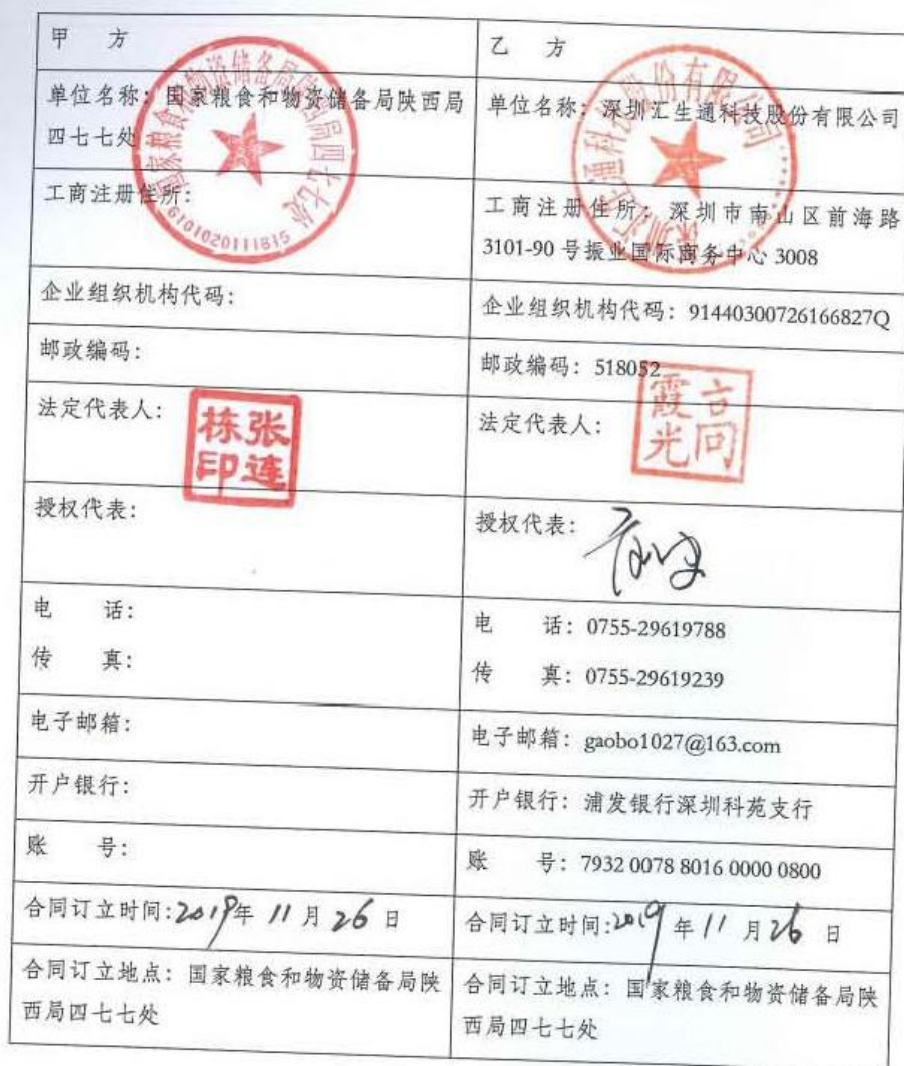 甲 方
乙 方
单位名称：国家粮食和物资储备局陕西局
四七七处
单位名称：深圳汇生通科技股份有限公司
工商注册住所：
工商注册住所：深圳市南山区前海路
3101-90 号振业国际商务中心 3008
企业组织机构代码：
企业组织机构代码：91440300726166827Q
邮政编码：
邮政编码：518052
法定代表人：
法定代表人：
授权代表：
授权代表：
电 话：
传 真：
电 话：0755-29619788
传 真：0755-29619239
电子邮箱：
电子邮箱：gaobo1027@163.com
开户银行：
开户银行：浦发银行深圳科苑支行
账 号：
账 号：7932 0078 8016 0000 0800
合同订立时间:2019年 11 月 26 日
合同订立时间:2019 年 11 月 26 日
合同订立地点：国家粮食和物资储备局陕
西局四七七处
合同订立地点：国家粮食和物资储备局陕
西局四七七处
国家粮食和物资储备局陕西局四七七处
6101020111815
深圳汇生通科技股份有限公司
张连
栋印